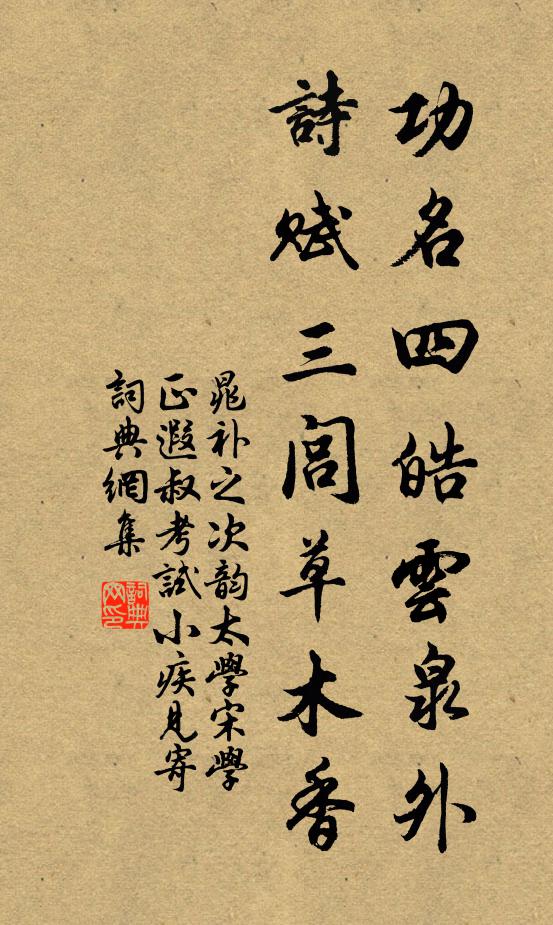 功名四皓雲泉外
詩賦三閭草木香
晁补之次韵太學宋學
正遐叔考試小疾見寄
詞典網集
詞典网印